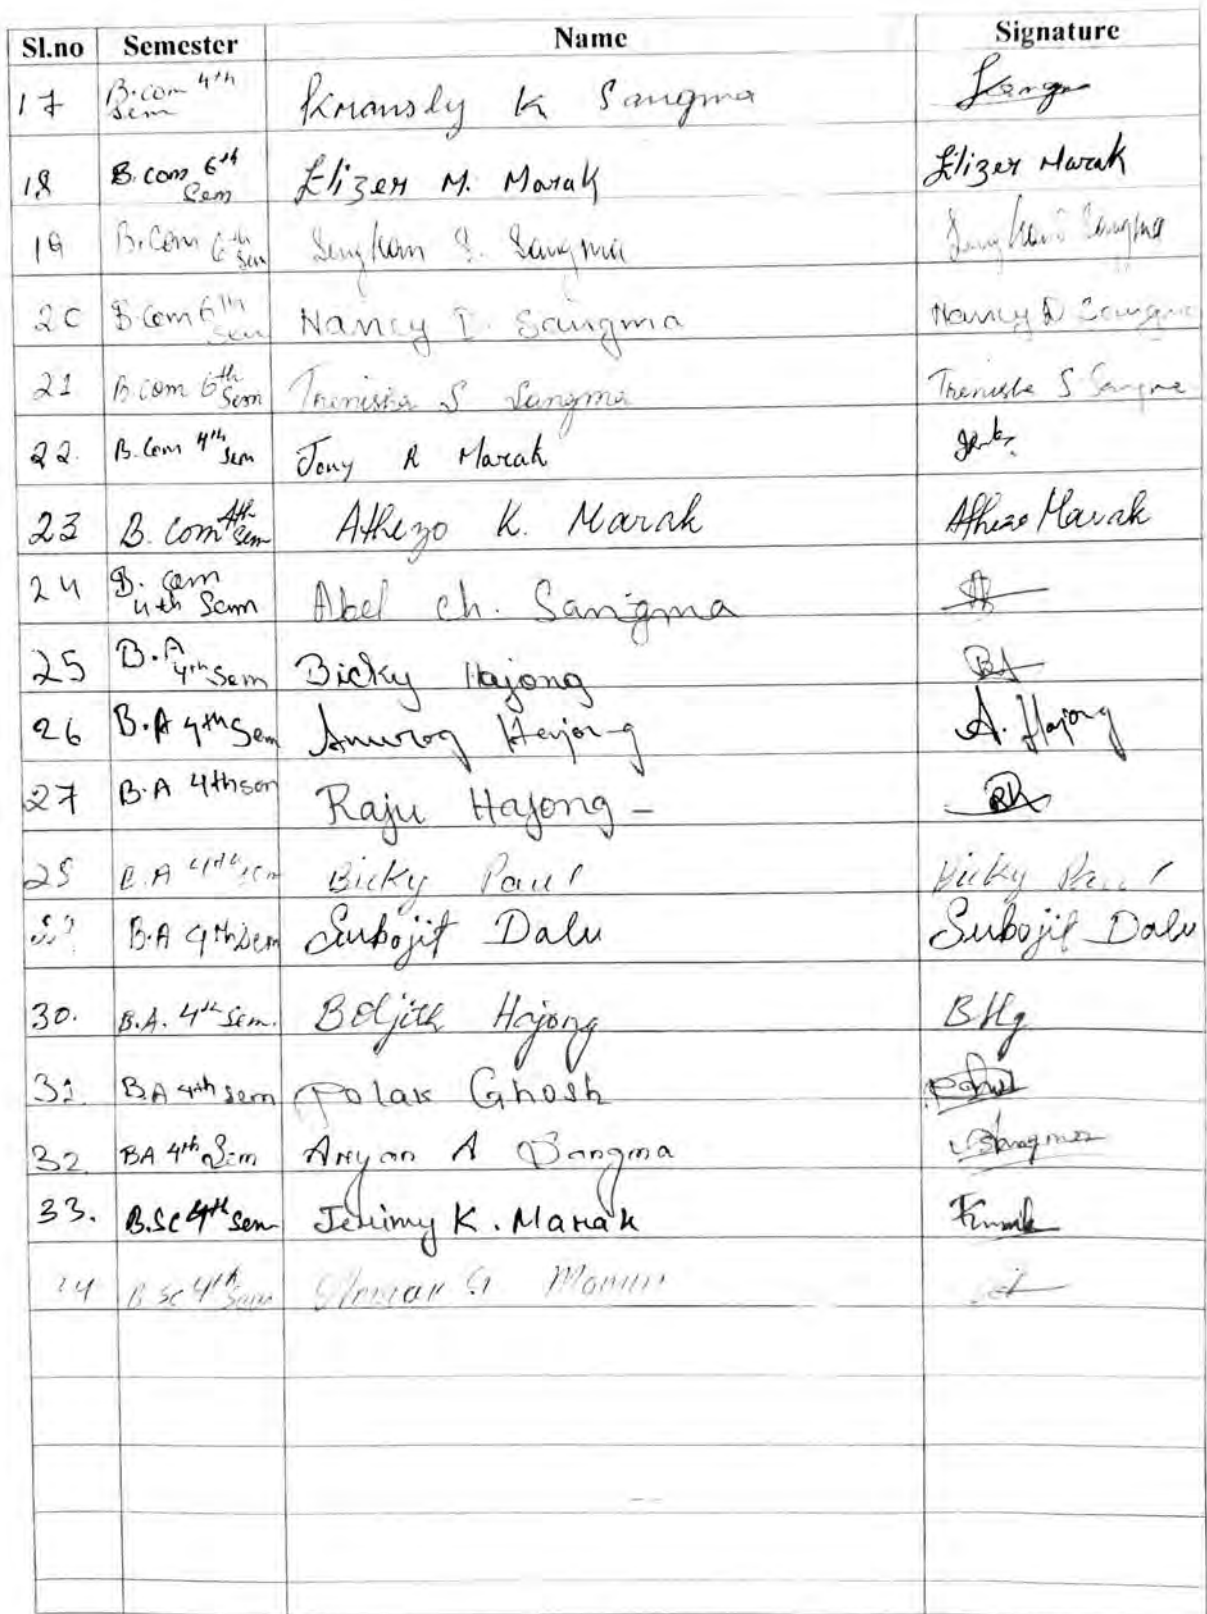 Sl.no Semester Name Signature
17 B.com 4th Sem K Sangma
18 B.com 6th Sem Elizer M. Marak Elizer Marak
19 B.Com 6th Sem Sengkam S. Sangma Sangma
20 B.Com 6th Sem Nancy D. Sangma Nancy D Sangma
21 B.com 6th Sem Trenisha S Sangma Trenisha S Sangma
22. B.Com 4th Sem Jony R Marak
23 B. Com 4th Sem Athezo K. Marak Athezo Marak
24 B. com 4th Sem Abel ch. Sangma
25 B.A 4th Sem Bicky Hajong
26 B.A 4th Sem Anurag Hajong A. Hajong
27 B.A 4th sem Raju Hajong
28 B.A 4th sem Bicky Paul Bicky Paul
B.A 4th Sem Subojit Dalu Subojit Dalu
30. B.A. 4th Sem. Hajong BHg
31. B.A 4th sem Polak Ghosh
32 BA 4th Sem Aryan A Sangma
33. B.Sc 4th Sem Jerimy K. Marak
34 B.Sc 4th Sem Momin